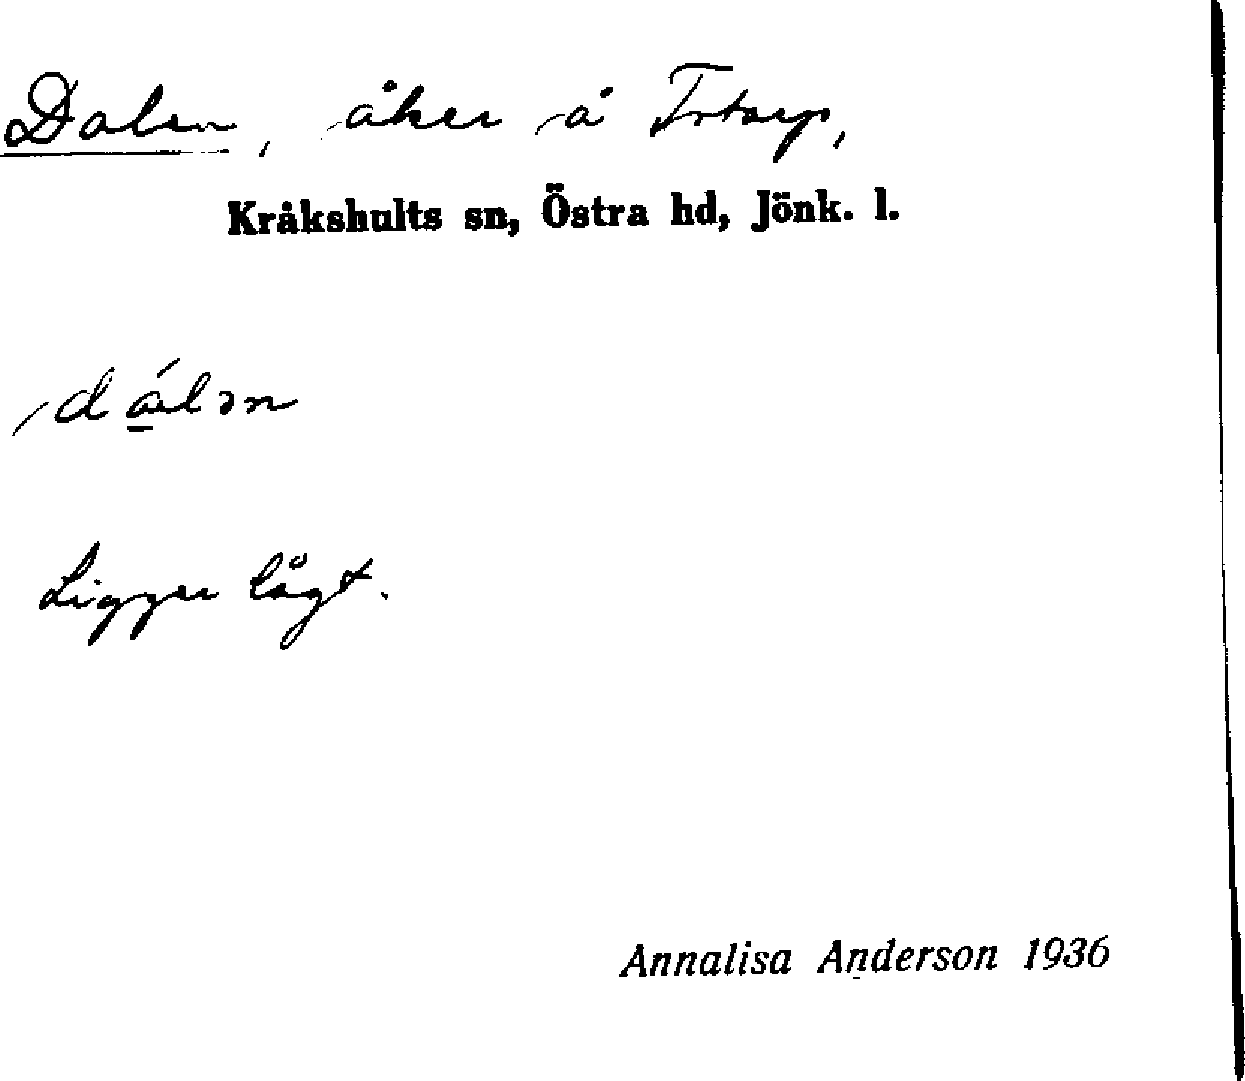 Dalen, åker å Trtarp,
Kråkshults sn, Östra hd, Jönk. l.
dálən
Ligger lågt.
Annalisa Anderson 1936